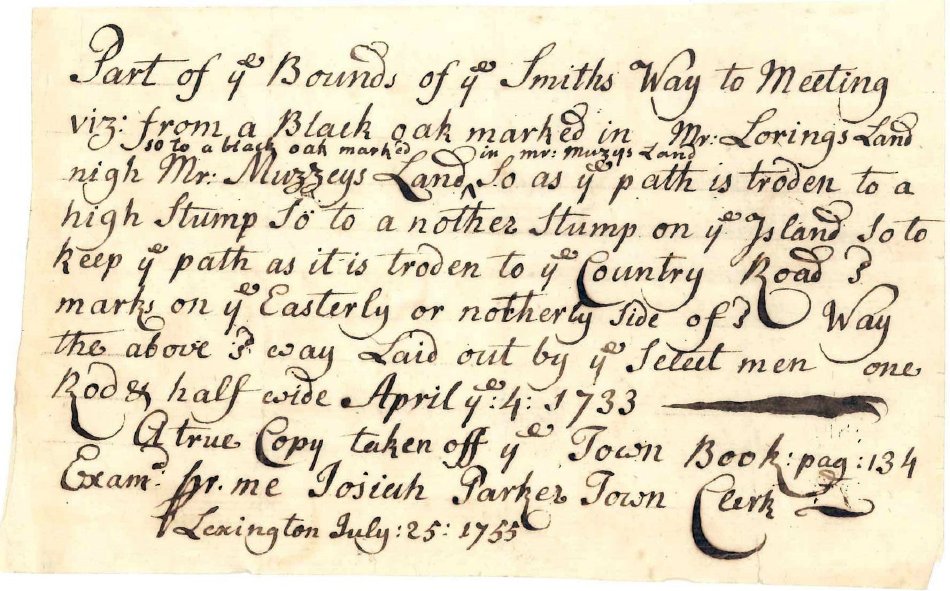 Part of yᵉ Bounds of yᵉ Smiths Way to Meeting
viz: from a Black oak marked in Mr: Lorings Land
so to a black oak marked in mr: muzys Land
nigh Mr: Muzzeys Land ‸ So as yᵉ path is troden to a
high Stump So to a nother Stump on yᵉ Island So to
keep yᵉ path as it is troden to yᵉ Country Road
marks on yᵉ Easterly or notherly Side of Way
the above way Laid out by yᵉ Select men one
Rod & half wide April yᵉ: 4: 1733
A true Copy taken off yᵉ Town Book: pag: 134
Examᵈ. pr. me Josiah Parker Town Clerk
Lexington July: 25: 1755